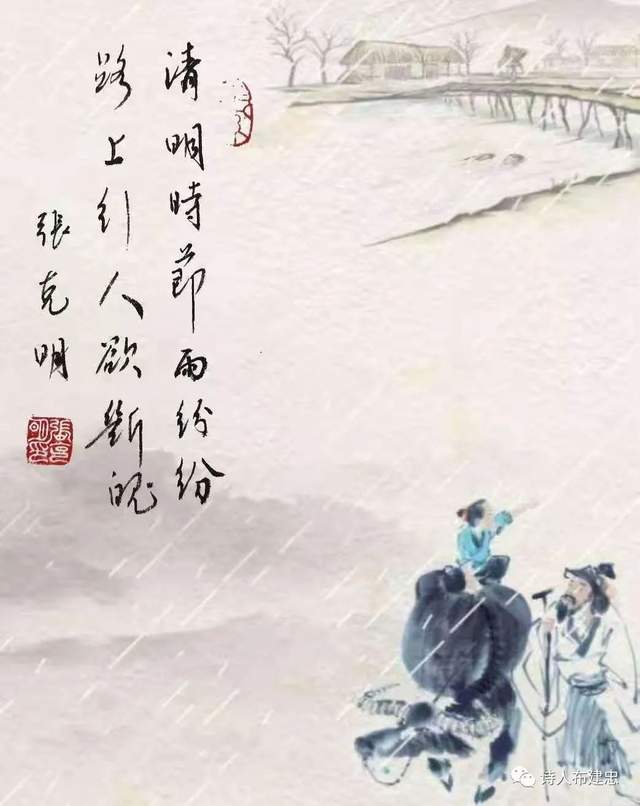 清明時節雨紛紛
路上行人欲斷魂
張克明
诗人布建忠